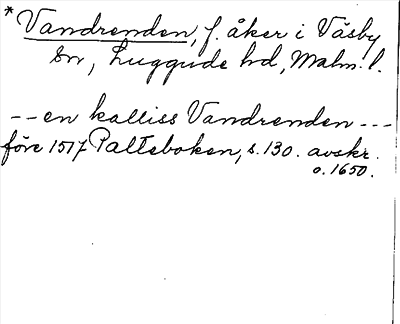 *Vandrenden, f. åker i Väsby
sn, Luggude hd, Malm. l.
-- en kalliss Vandrenden ---
före 1517 Palteboken, s. 130. avskr.
o. 1650.